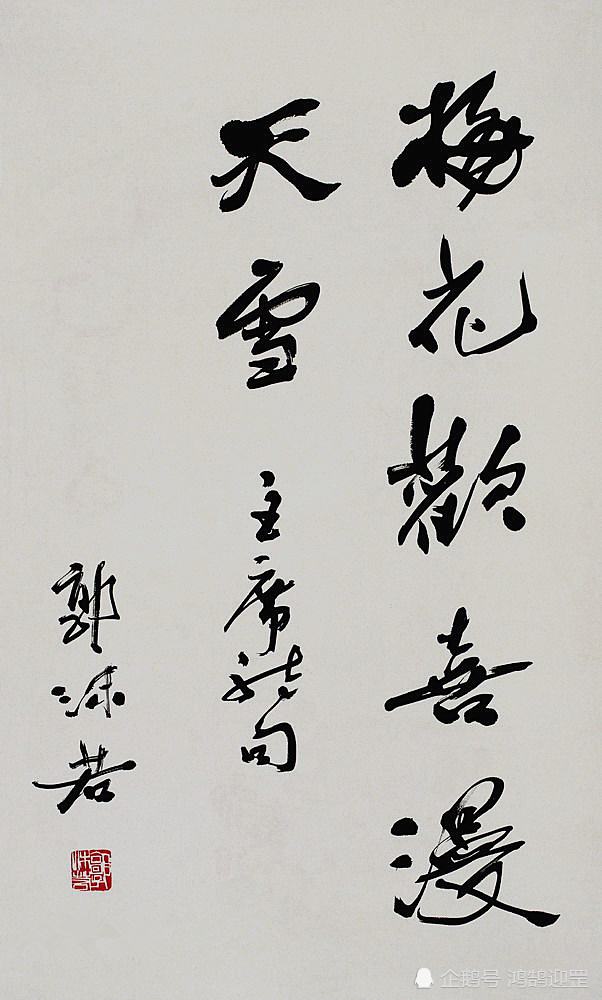 梅花歡喜漫
天雪 主席詩句
郭沫若
郭沫若
企鹅号 鸿鹄迎罡